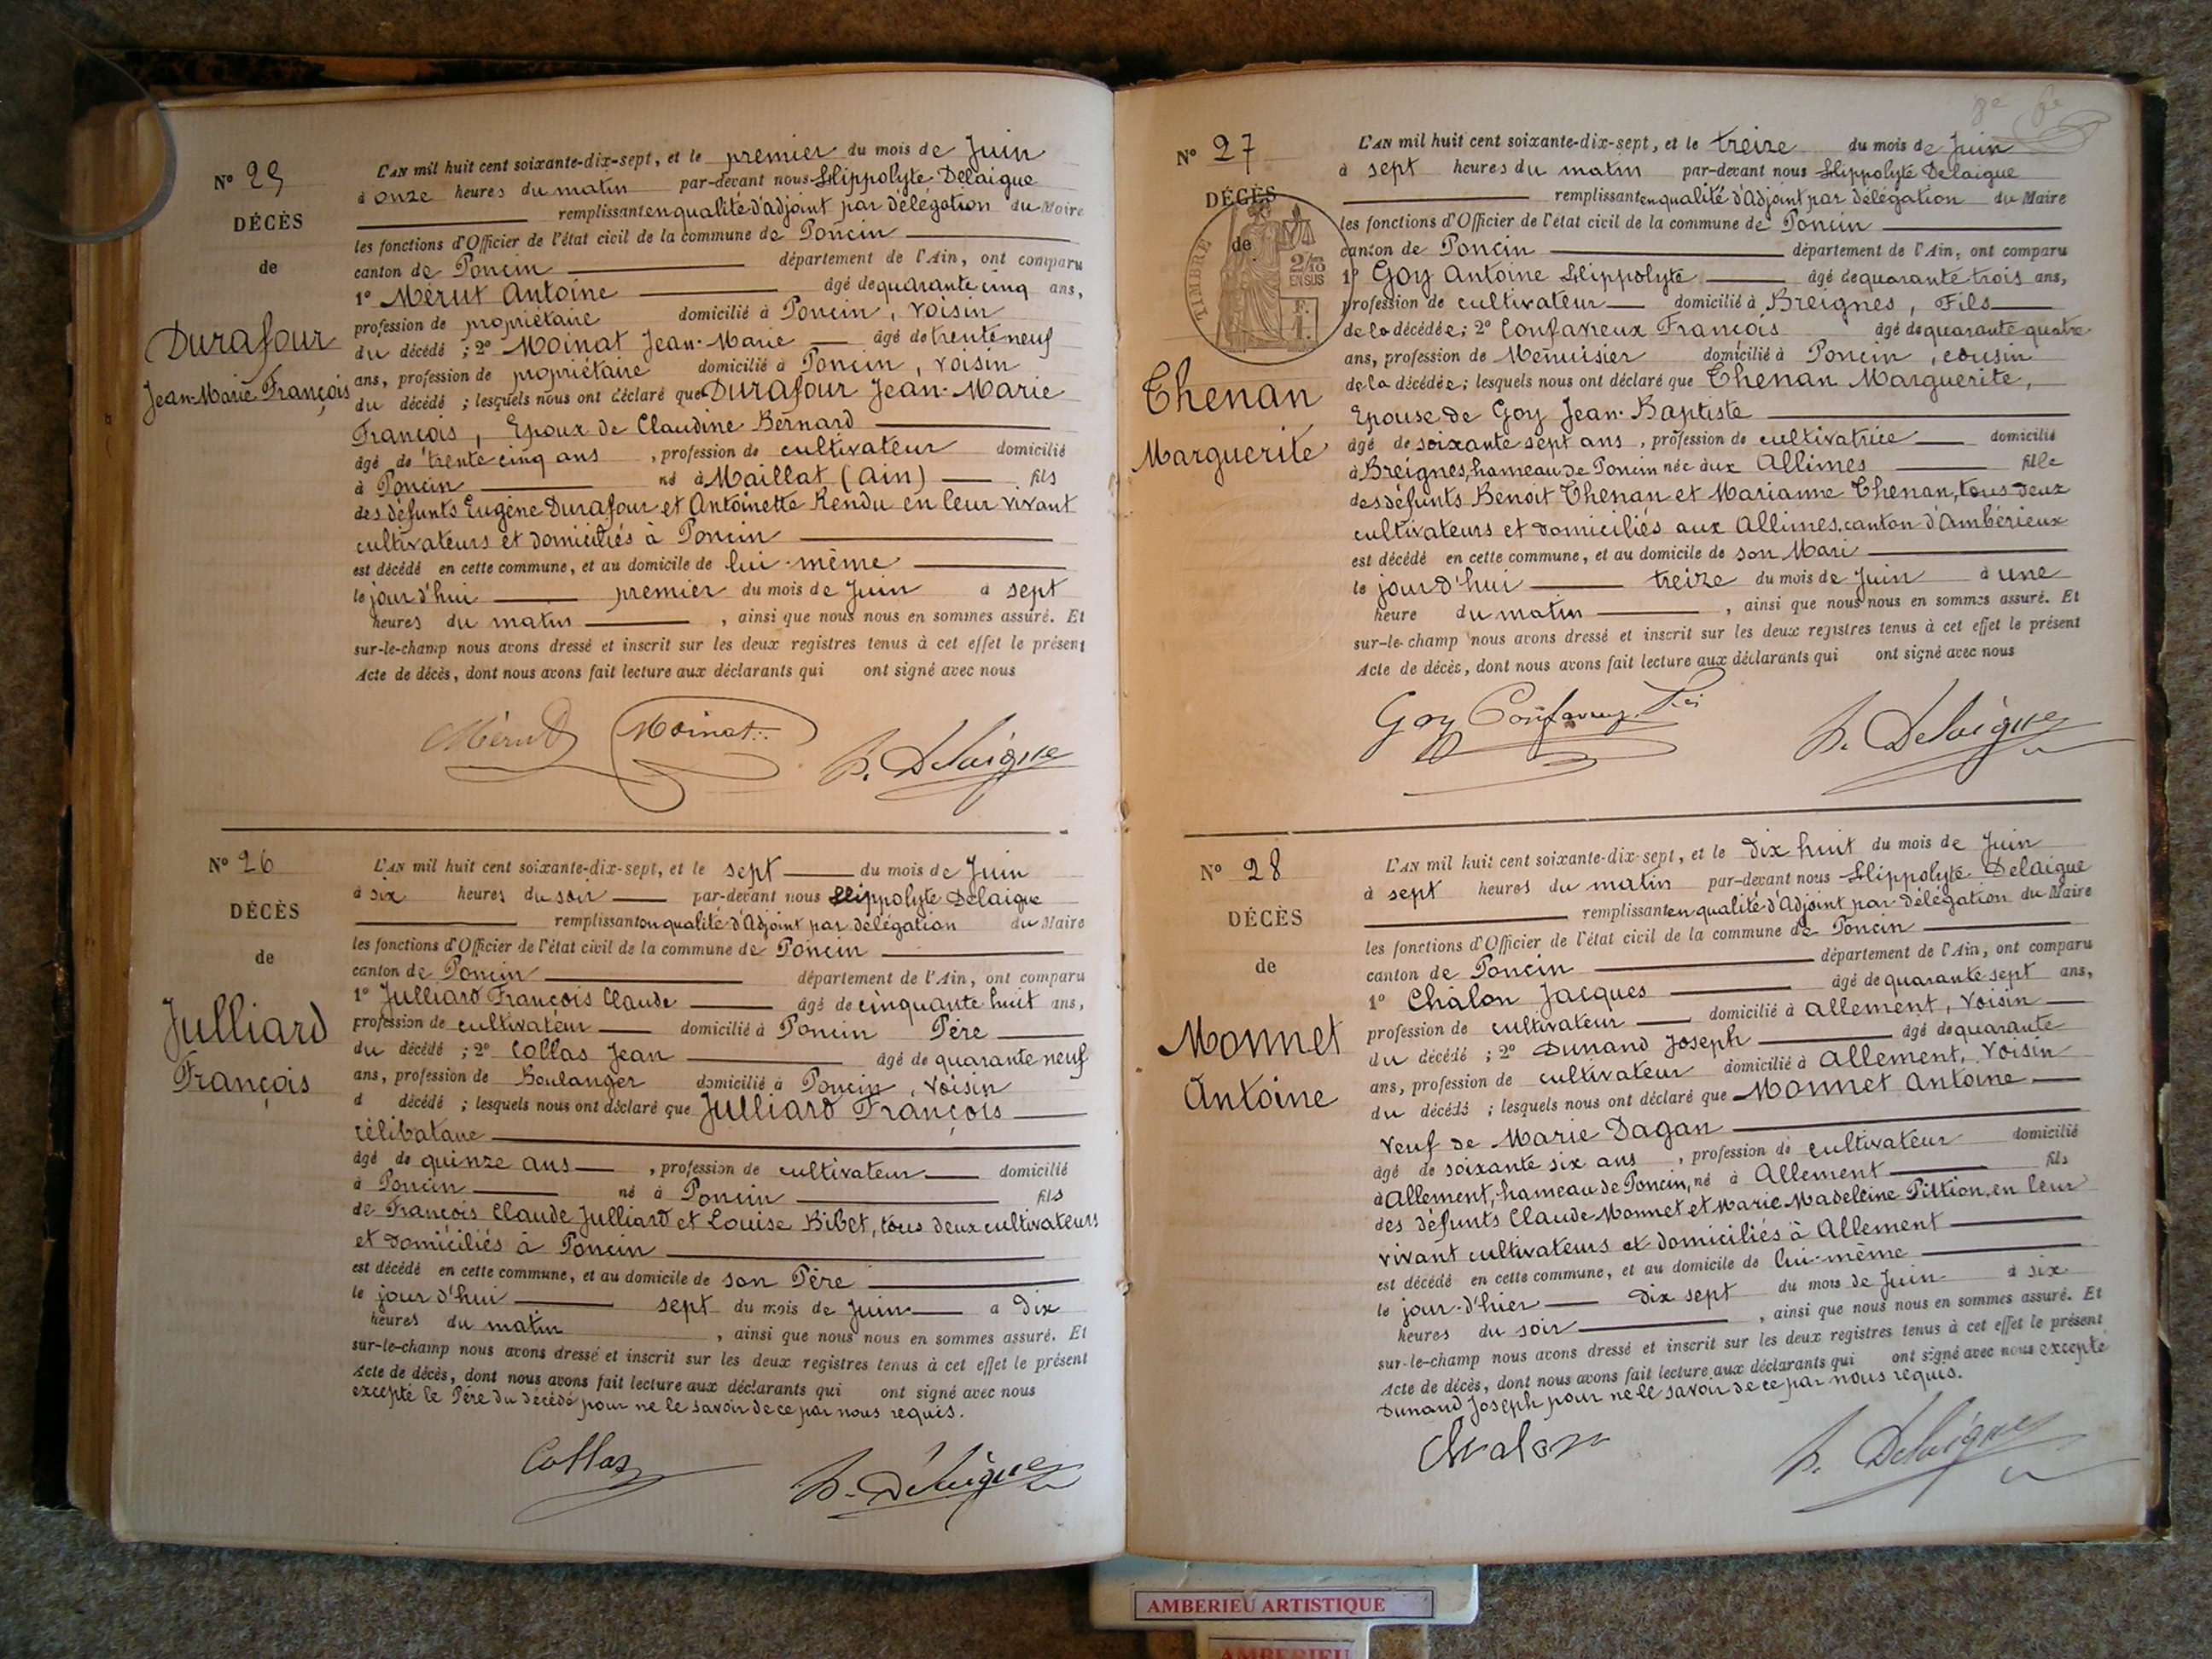 N° 25
DÉCÈS
de
Durafour
Jean-Marie François
L'AN mil huit cent soixante-dix-sept, et le premier du mois de Juin
à onze heures du matin par-devant nous Hippolyte Delaigue
remplissant en qualité d'adjoint par délégation du Maire
les fonctions d'Officier de l'état civil de la commune de Poncin
canton de Poncin département de l'Ain, ont comparu
1° Mérut Antoine âgé de quarante cinq ans,
profession de propriétaire domicilié à Poncin, Voisin
du décédé ; 2° Moinat Jean-Marie âgé de trente neuf
ans, profession de propriétaire domicilié à Poncin, Voisin
du décédé ; lesquels nous ont déclaré que Durafour Jean-Marie
François, Epoux de Claudine Bernard
âgé de trente cinq ans, profession de cultivateur domicilié
à Poncin né à Maillat (Ain) fils
des défunts Eugène Durafour et Antoinette Rendu en leur vivant
cultivateurs et domiciliés à Poncin
est décédé en cette commune, et au domicile de lui-même
le jourd'hui premier du mois de Juin à sept
heures du matin, ainsi que nous nous en sommes assuré. Et
sur-le-champ nous avons dressé et inscrit sur les deux registres tenus à cet effet le présent
Acte de décès, dont nous avons fait lecture aux déclarants qui ont signé avec nous
Mérut Moinat H. Delaigue
N° 26
DÉCÈS
de
Julliard
François
L'AN mil huit cent soixante-dix-sept, et le sept du mois de Juin
à six heures du soir par-devant nous Hippolyte Delaigue
remplissant en qualité d'Adjoint par délégation du Maire
les fonctions d'Officier de l'état civil de la commune de Poncin
canton de Poncin département de l'Ain, ont comparu
1° Julliard François Claude âgé de cinquante huit ans,
profession de cultivateur domicilié à Poncin Père
du décédé ; 2° Collas Jean âgé de quarante neuf
ans, profession de Boulanger domicilié à Poncin, Voisin
d décédé ; lesquels nous ont déclaré que Julliard François
célibataire
âgé de quinze ans, profession de cultivateur domicilié
à Poncin né à Poncin fils
de François Claude Julliard et Louise Bibet, tous deux cultivateurs
et domiciliés à Poncin
est décédé en cette commune, et au domicile de son Père
le jourd'hui sept du mois de Juin à dix
heures du matin, ainsi que nous nous en sommes assuré. Et
sur-le-champ nous avons dressé et inscrit sur les deux registres tenus à cet effet le présent
Acte de décès, dont nous avons fait lecture aux déclarants qui ont signé avec nous
excepté le Père du décédé pour ne le savoir de ce par nous requis.
Collas H. Delaigue
N° 27
DÉCÈS
de
TIMBRE
2/10
EN SUS
Thenan
Marguerite
L'AN mil huit cent soixante-dix-sept, et le treize du mois de Juin
à sept heures du matin par-devant nous Hippolyte Delaigue
remplissant en qualité d'Adjoint par délégation du Maire
les fonctions d'Officier de l'état civil de la commune de Poncin
canton de Poncin département de l'Ain, ont comparu
1° Goy Antoine Hippolyte âgé de quarante trois ans,
profession de cultivateur domicilié à Breignes, Fils
de la décédée ; 2° Confavreux François âgé de quarante quatre
ans, profession de Menuisier domicilié à Poncin, cousin
de la décédée ; lesquels nous ont déclaré que Thenan Marguerite,
Epouse de Goy Jean-Baptiste
âgé de soixante sept ans, profession de cultivatrice domicilié
à Breignes, hameau de Poncin née aux Allimes fille
des défunts Benoit Thenan et Marianne Thenan, tous deux
cultivateurs et domiciliés aux Allimes, canton d'Ambérieux
est décédé en cette commune, et au domicile de son Mari
le jourd'hui treize du mois de Juin à une
heure du matin, ainsi que nous nous en sommes assuré. Et
sur-le-champ nous avons dressé et inscrit sur les deux registres tenus à cet effet le présent
Acte de décès, dont nous avons fait lecture aux déclarants qui ont signé avec nous
Goy Confavreux H. Delaigue
N° 28
DÉCÈS
de
Monnet
Antoine
L'AN mil huit cent soixante-dix-sept, et le dix huit du mois de Juin
à sept heures du matin par-devant nous Hippolyte Delaigue
remplissant en qualité d'Adjoint par délégation du Maire
les fonctions d'Officier de l'état civil de la commune de Poncin
canton de Poncin département de l'Ain, ont comparu
1° Châlon Jacques âgé de quarante sept ans,
profession de cultivateur domicilié à Allement, Voisin
du décédé ; 2° Dunand Joseph âgé de quarante
ans, profession de cultivateur domicilié à Allement, Voisin
du décédé ; lesquels nous ont déclaré que Monnet Antoine
Veuf de Marie Dagan
âgé de soixante six ans, profession de cultivateur domicilié
à Allement, hameau de Poncin, né à Allement fils
des défunts Claude Monnet et Marie Madeleine Pittion, en leur
vivant cultivateurs et domiciliés à Allement
est décédé en cette commune, et au domicile de lui-même
le jour-d'hier dix sept du mois de Juin à six
heures du soir, ainsi que nous nous en sommes assuré. Et
sur-le-champ nous avons dressé et inscrit sur les deux registres tenus à cet effet le présent
Acte de décès, dont nous avons fait lecture aux déclarants qui ont signé avec nous excepté
Dunand Joseph pour ne le savoir de ce par nous requis.
Chalon H. Delaigue
AMBERIEU ARTISTIQUE
AMBERIEU